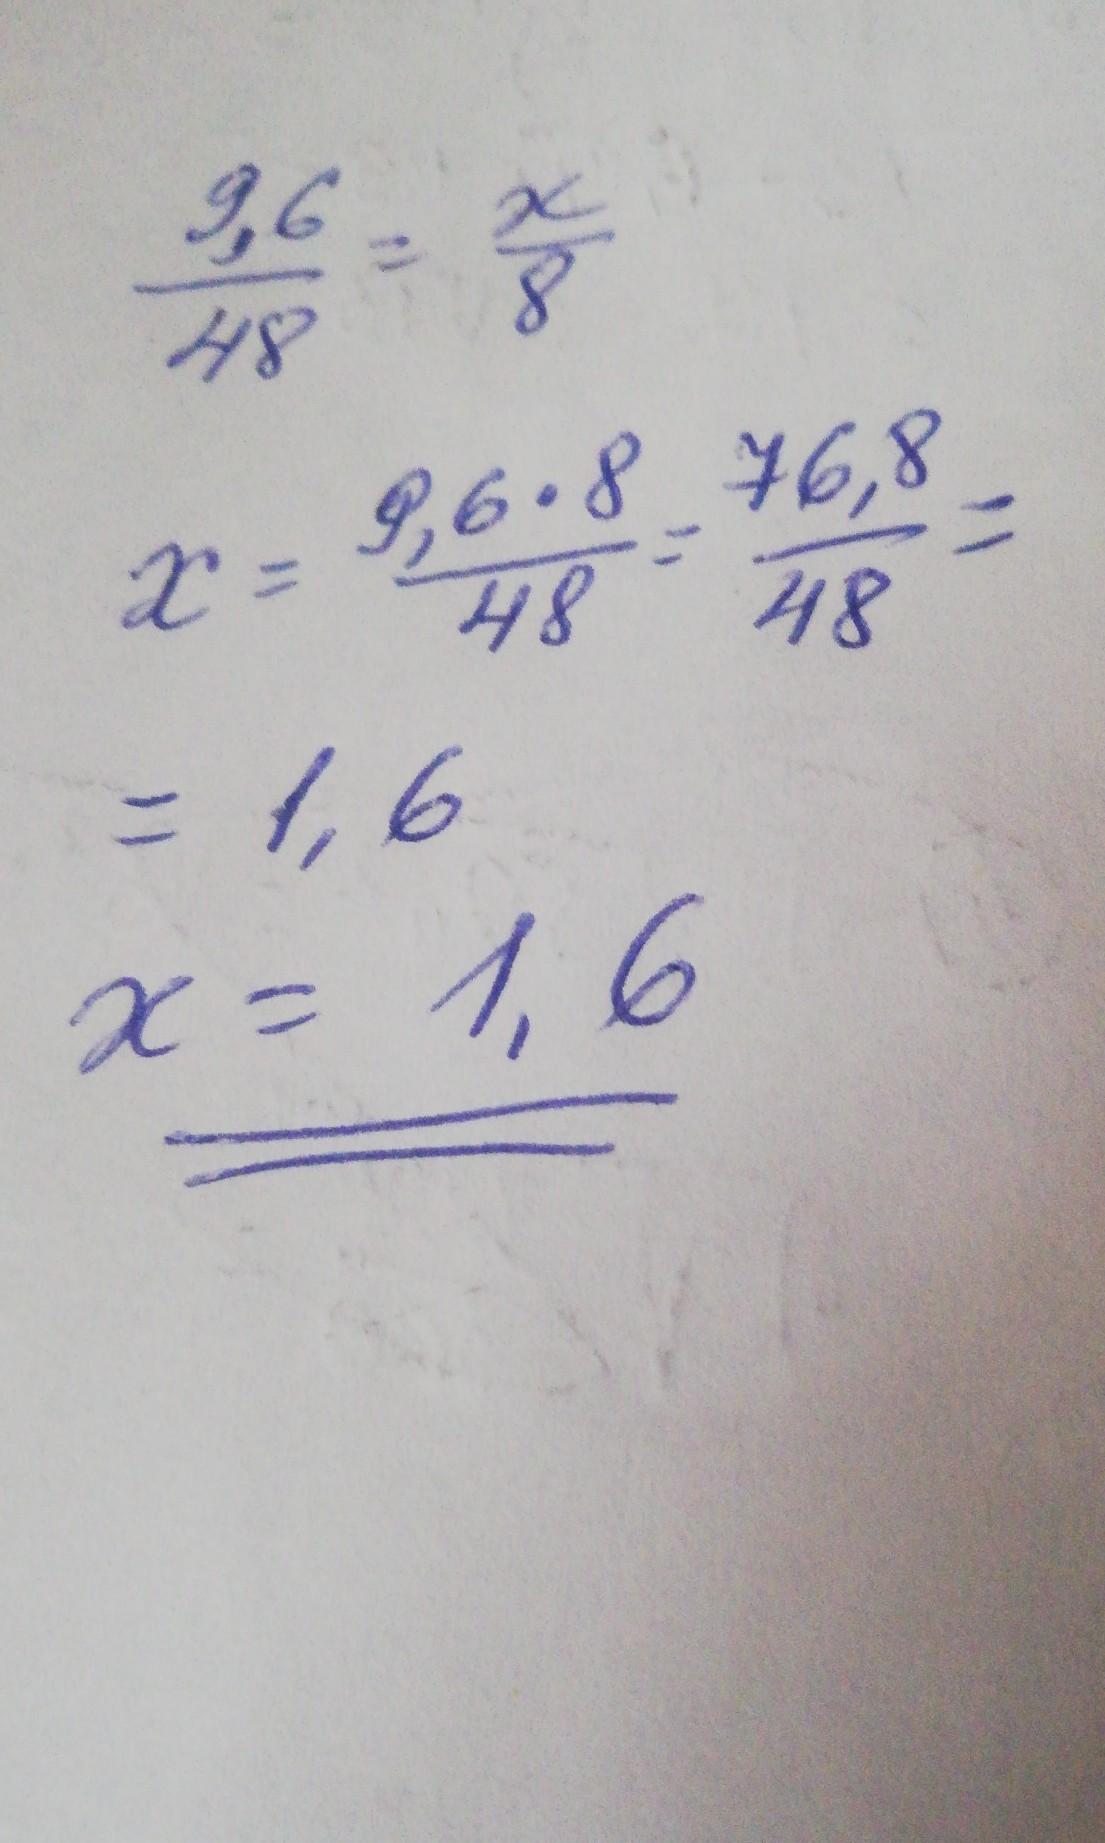 9,6/48 = x/8
x = 9,6·8/48 = 76,8/48 =
= 1,6
x = 1,6